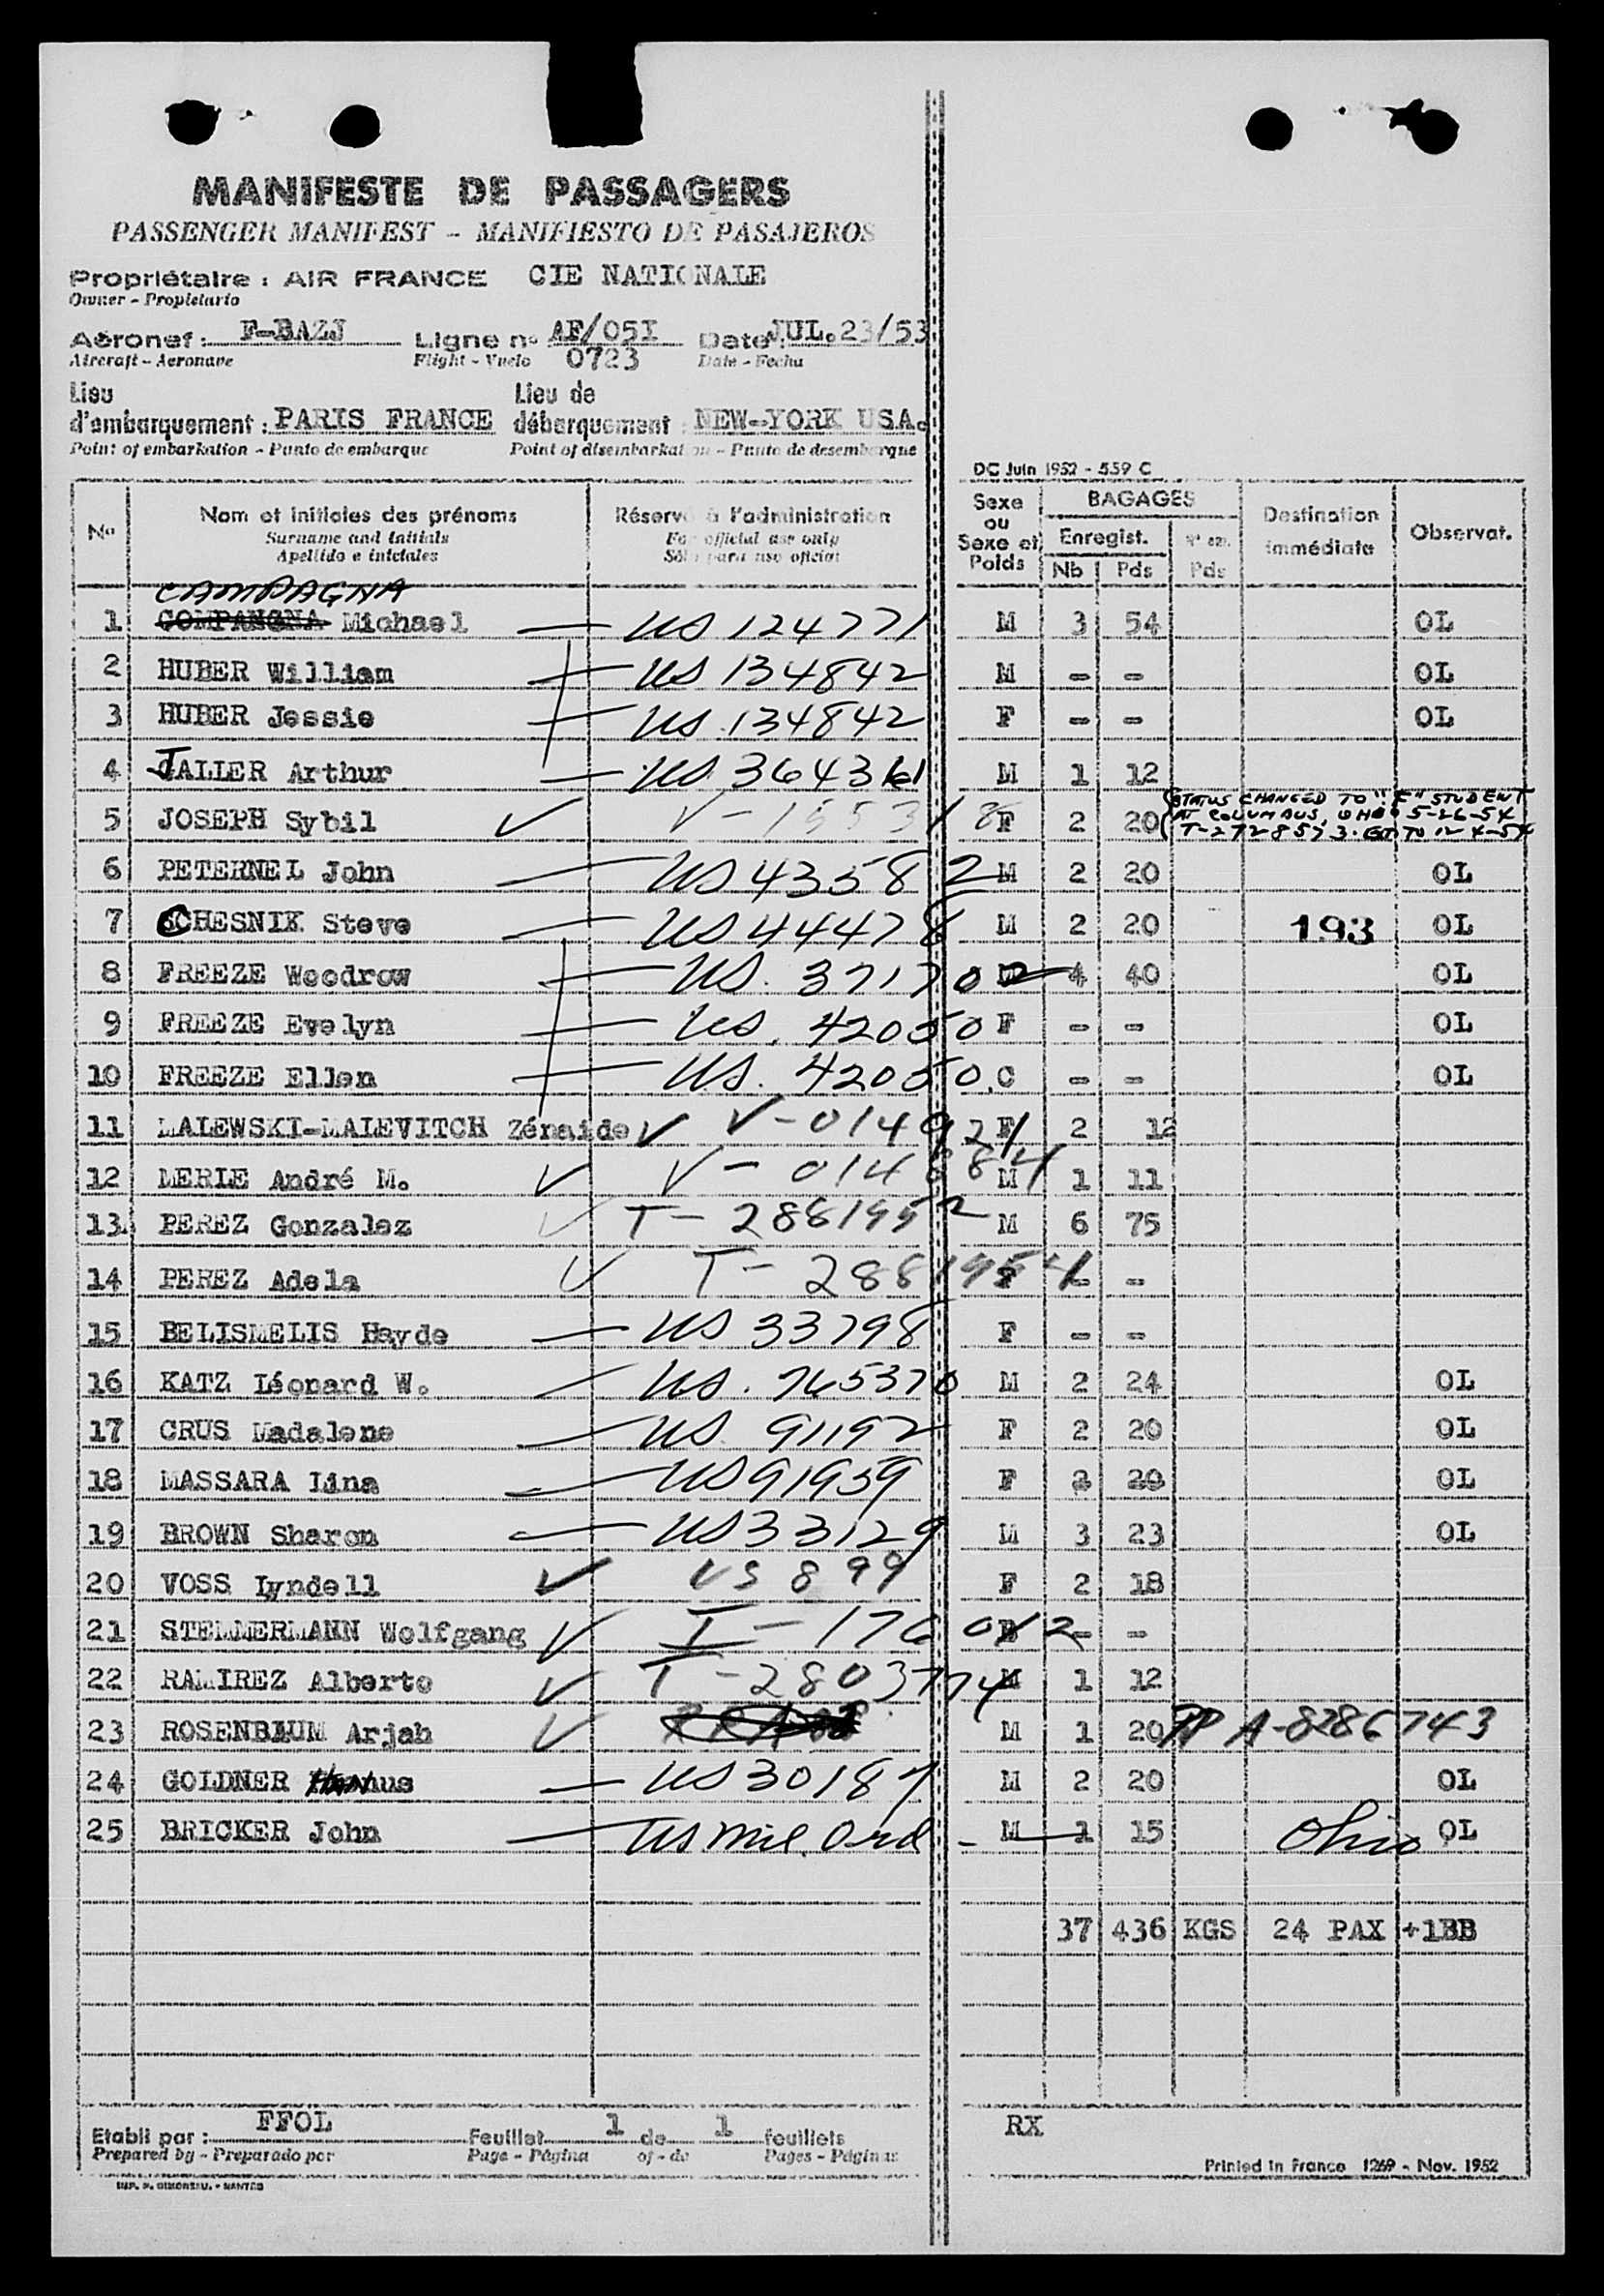 MANIFESTE DE PASSAGERS
PASSENGER MANIFEST - MANIFIESTO DE PASAJEROS
Propriétaire : AIR FRANCE CIE NATIONALE
Owner - Propietario
Aéronef : F-BAZJ Ligne no AF/05I Date: JUL.23/53
Aircraft - Aeronave Flight - Vuelo 0723 Date - Fecha
Lieu Lieu de
d'embarquement : PARIS FRANCE débarquement : NEW-YORK USA.
Point of embarkation - Punto de embarque Point of disembarkation - Punto de desembarque
DC Juin 1952 - 559 C
No Nom et initiales des prénoms Réservé à l'administration Sexe ou Sexe et Poids BAGAGES Destination immédiate Observat.
Surname and initials For official use only Enregist.
Apellido e iniciales Sólo para uso oficial Nb Pds Pds
CAMPAGNA
1 COMPANGNA Michael US 124771 M 3 54 OL
2 HUBER William US 134842 M - - OL
3 HUBER Jessie US 134842 F - - OL
4 JALLER Arthur US 364361 M 1 12
STATUS CHANGED TO "F" STUDENT
5 JOSEPH Sybil V-155318 F 2 20 AT COLUMBUS, OHIO 5-26-54
T-2728573. EXT TO 12-4-54
6 PETERNEL John US 43582 M 2 20 OL
7 CHESNIK Steve US 44478 M 2 20 193 OL
8 FREEZE Woodrow US. 371702 M 4 40 OL
9 FREEZE Evelyn US. 42050 F - - OL
10 FREEZE Ellen US. 42050 C - - OL
11 MALEWSKI-MALEVITCH Zénaide V-014921 F 2 12
12 MERLE André M. V-014884 M 1 11
13 PEREZ Gonzalez T-2881952 M 6 75
14 PEREZ Adela T-2881954 F - -
15 BELISMELIS Hayde US 33798 F - -
16 KATZ Léonard W. US. 765370 M 2 24 OL
17 CRUS Madalene US 91192 F 2 20 OL
18 MASSARA Lina US 91959 F 2 20 OL
19 BROWN Sharon US 33129 M 3 23 OL
20 VOSS Lyndell US 899 F 2 18
21 STEMMERMANN Wolfgang T-176012 - -
22 RAMIREZ Alberto T-2803774 M 1 12
23 ROSENBAUM Arjah M 1 20 RP A-8286743
24 GOLDNER Hanus US 30187 M 2 20 OL
25 BRICKER John US Mil. Ord - M 1 15 Ohio OL
37 436 KGS 24 PAX +1BB
Etabli par : FFOL Feuillet 1 de 1 feuillets RX
Prepared by - Preparado por Page - Página of - de Pages - Páginas
Printed in France 1269 - Nov. 1952